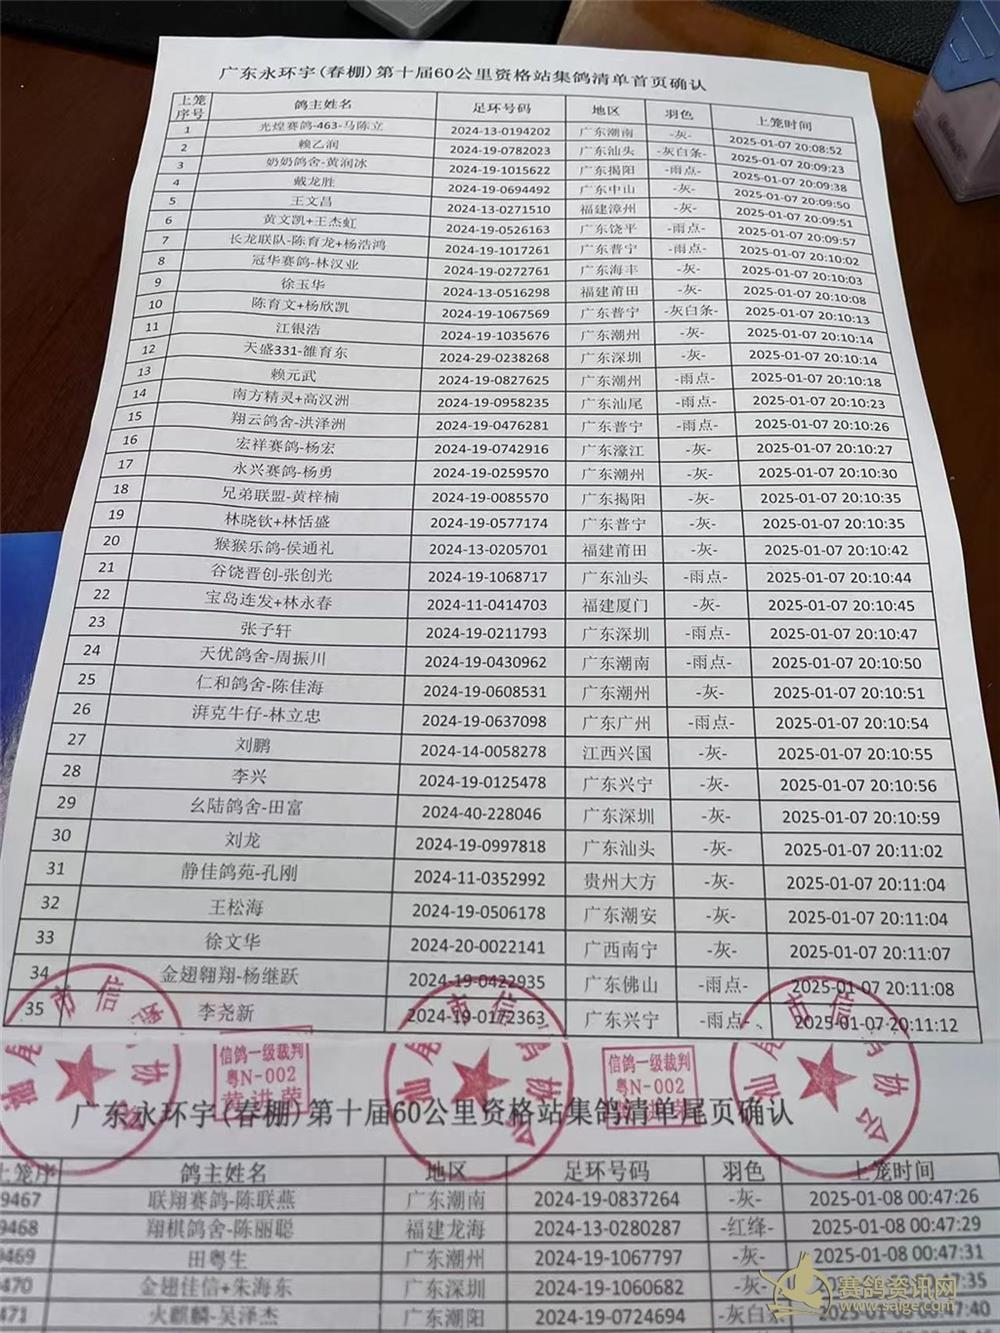 广东永环宇(春棚)第十届60公里资格站集鸽清单首页确认
上笼序号 鸽主姓名 足环号码 地区 羽色 上笼时间
1 光煌赛鸽-463-马陈立 2024-13-0194202 广东潮南 -灰- 2025-01-07 20:08:52
2 赖乙润 2024-19-0782023 广东汕头 -灰白条- 2025-01-07 20:09:23
3 奶奶鸽舍-黄润冰 2024-19-1015622 广东揭阳 -雨点- 2025-01-07 20:09:38
4 戴龙胜 2024-19-0694492 广东中山 -灰- 2025-01-07 20:09:50
5 王文昌 2024-13-0271510 福建漳州 -灰- 2025-01-07 20:09:51
6 黄文凯+王杰虹 2024-19-0526163 广东饶平 -雨点- 2025-01-07 20:09:57
7 长龙联队-陈育龙+杨浩鸿 2024-19-1017261 广东普宁 -雨点- 2025-01-07 20:10:02
8 冠华赛鸽-林汉业 2024-19-0272761 广东海丰 -灰- 2025-01-07 20:10:03
9 徐玉华 2024-13-0516298 福建莆田 -灰- 2025-01-07 20:10:08
10 陈育文+杨欣凯 2024-19-1067569 广东普宁 -灰白条- 2025-01-07 20:10:13
11 江银浩 2024-19-1035676 广东潮州 -灰- 2025-01-07 20:10:14
12 天盛331-雒育东 2024-29-0238268 广东深圳 -灰- 2025-01-07 20:10:14
13 赖元武 2024-19-0827625 广东潮州 -雨点- 2025-01-07 20:10:18
14 南方精灵+高汉洲 2024-19-0958235 广东汕尾 -雨点- 2025-01-07 20:10:23
15 翔云鸽舍-洪泽洲 2024-19-0476281 广东普宁 -雨点- 2025-01-07 20:10:26
16 宏祥赛鸽-杨宏 2024-19-0742916 广东濠江 -灰- 2025-01-07 20:10:27
17 永兴赛鸽-杨勇 2024-19-0259570 广东潮州 -灰- 2025-01-07 20:10:30
18 兄弟联盟-黄梓楠 2024-19-0085570 广东揭阳 -灰- 2025-01-07 20:10:35
19 林晓钦+林恬盛 2024-19-0577174 广东普宁 -灰- 2025-01-07 20:10:35
20 猴猴乐鸽-侯通礼 2024-13-0205701 福建莆田 -灰- 2025-01-07 20:10:42
21 谷饶晋创-张创光 2024-19-1068717 广东汕头 -雨点- 2025-01-07 20:10:44
22 宝岛连发+林永春 2024-11-0414703 福建厦门 -灰- 2025-01-07 20:10:45
23 张子轩 2024-19-0211793 广东深圳 -雨点- 2025-01-07 20:10:47
24 天优鸽舍-周振川 2024-19-0430962 广东潮南 -雨点- 2025-01-07 20:10:50
25 仁和鸽舍-陈佳海 2024-19-0608531 广东潮州 -灰- 2025-01-07 20:10:51
26 湃克牛仔-林立忠 2024-19-0637098 广东广州 -雨点- 2025-01-07 20:10:54
27 刘鹏 2024-14-0058278 江西兴国 -灰- 2025-01-07 20:10:55
28 李兴 2024-19-0125478 广东兴宁 -灰- 2025-01-07 20:10:56
29 幺陆鸽舍-田富 2024-40-228046 广东深圳 -灰- 2025-01-07 20:10:59
30 刘龙 2024-19-0997818 广东汕头 -灰- 2025-01-07 20:11:02
31 静佳鸽苑-孔刚 2024-11-0352992 贵州大方 -灰- 2025-01-07 20:11:04
32 王松海 2024-19-0506178 广东潮安 -灰- 2025-01-07 20:11:04
33 徐文华 2024-20-0022141 广西南宁 -灰- 2025-01-07 20:11:07
34 金翅翱翔-杨继跃 2024-19-0422935 广东佛山 -雨点- 2025-01-07 20:11:08
35 李尧新 2024-19-0172363 广东兴宁 -雨点- 2025-01-07 20:11:12
信鸽一级裁判 信鸽一级裁判
粤N-002 粤N-002
黄进荣
广东永环宇(春棚)第十届60公里资格站集鸽清单尾页确认
上笼序 鸽主姓名 地区 足环号码 羽色 上笼时间
9467 联翔赛鸽-陈联燕 广东潮南 2024-19-0837264 -灰- 2025-01-08 00:47:26
9468 翔棋鸽舍-陈丽聪 福建龙海 2024-13-0280287 -红绛- 2025-01-08 00:47:29
9469 田粤生 广东潮州 2024-19-1067797 -灰- 2025-01-08 00:47:31
9470 金翅佳信+朱海东 广东深圳 2024-19-1060682 -灰- :35
471 火麒麟-吴泽杰 广东潮阳 2024-19-0724694 -灰白 :40
赛鸽资讯网
www.saige.com